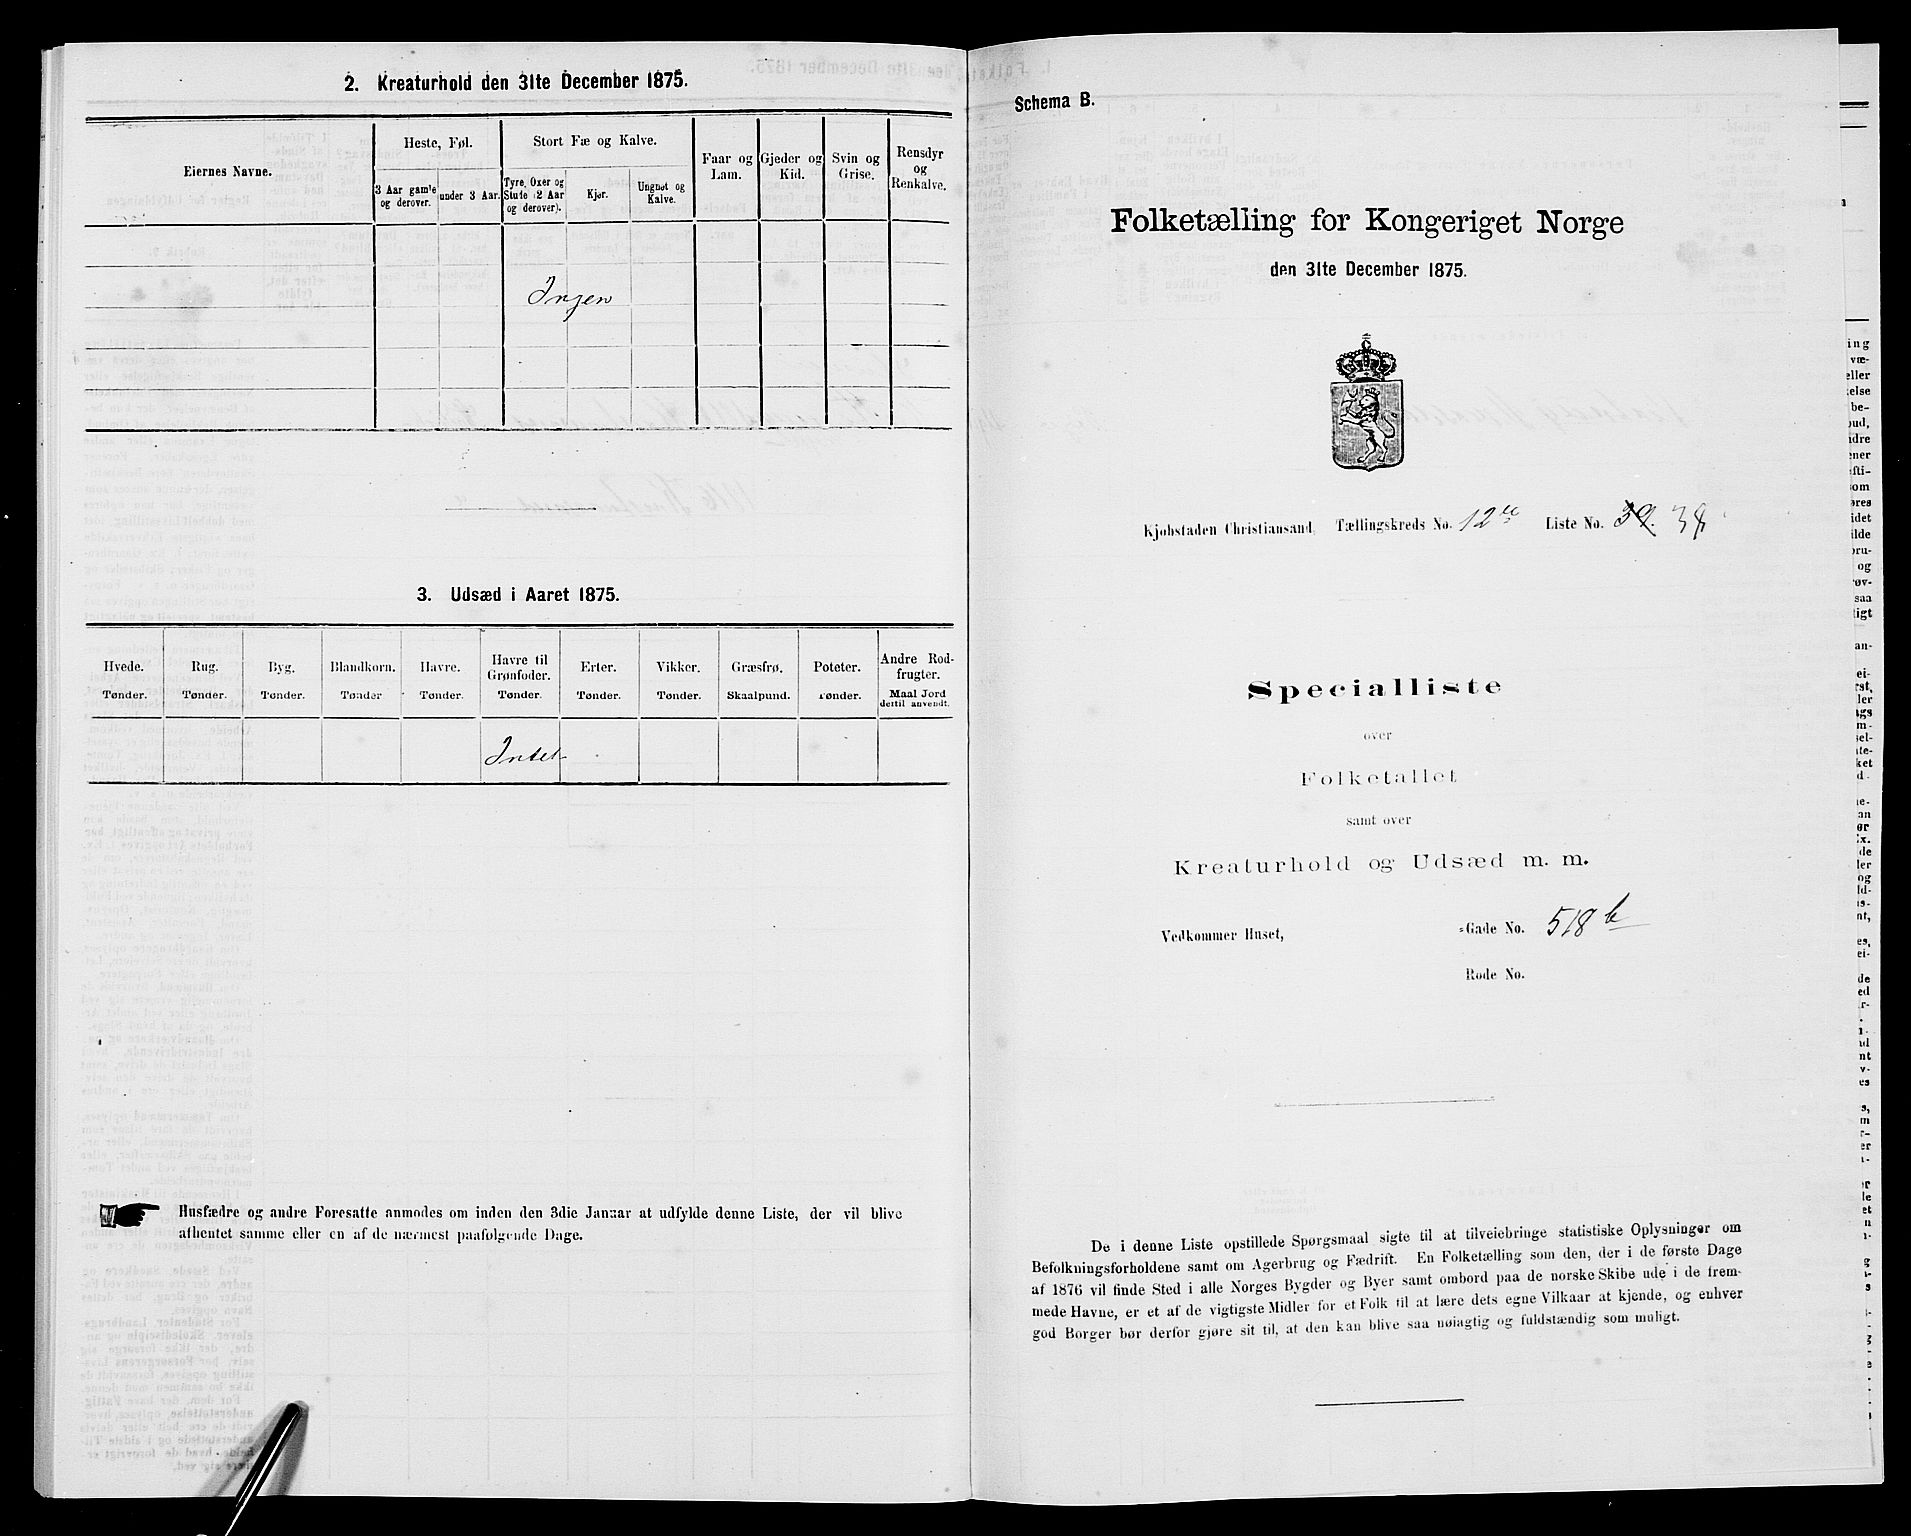 2. Kreaturhold den 31te December 1875.
Eiernes Navne.
Heste, Føl.
3 Aar gamle og derover.
under 3 Aar.
Stort Fæ og Kalve.
Tyre, Oxer og Stude (2 Aar og derover).
Kjør.
Ungnøt og Kalve.
Faar og Lam.
Gjeder og Kid.
Svin og Grise.
Rensdyr og Renkalve.
Ingen
3. Udsæd i Aaret 1875.
Hvede. Rug. Byg. Blandkorn. Havre. Havre til Grønfoder. Erter. Vikker. Græsfrø. Poteter. Andre Rodfrugter.
Tønder. Tønder. Tønder. Tønder Tønder. Tønder. Tønder. Tønder. Skaalpund. Tønder. Maal Jord dertil anvendt.
Intet
Husfædre og andre Foresatte anmodes om inden den 3die Januar at udfylde denne Liste, der vil blive
afhentet samme eller en af de nærmest paafølgende Dage.
Schema B.
Folketælling for Kongeriget Norge
den 31te December 1875.
Kjøbstaden Christiansand, Tællingskreds No. 12te Liste No. 39. 38
Specialliste
over
Folketallet
samt over
Kreaturhold og Udsæd m. m.
Vedkommer Huset, -Gade No. 518b
Rode No.
De i denne Liste opstillede Spørgsmaal sigte til at tilveiebringe statistiske Oplysninger om
Befolkningsforholdene samt om Agerbrug og Fædrift. En Folketælling som den, der i de første Dage
af 1876 vil finde Sted i alle Norges Bygder og Byer samt ombord paa de norske Skibe ude i de frem-
mede Havne, er et af de vigtigste Midler for et Folk til at lære dets egne Vilkaar at kjende, og enhver
god Borger bør derfor gjøre sit til, at den kan blive saa nøiagtig og fuldstændig som muligt.